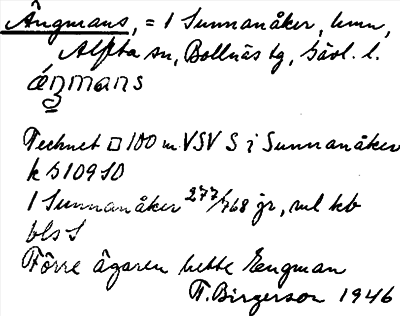 Ängmans, = 1 Sunnanåker, hmn,
Alfta sn, Bollnäs tg, Gävl. l.
áŋmans
Tecknet □ 100 m VSV S i Sunnanåker
k S10910
1 Sunnanåker 277/768 gr, enl kb
bls S
Förre ägaren hette Engman
T. Birgerson 1946